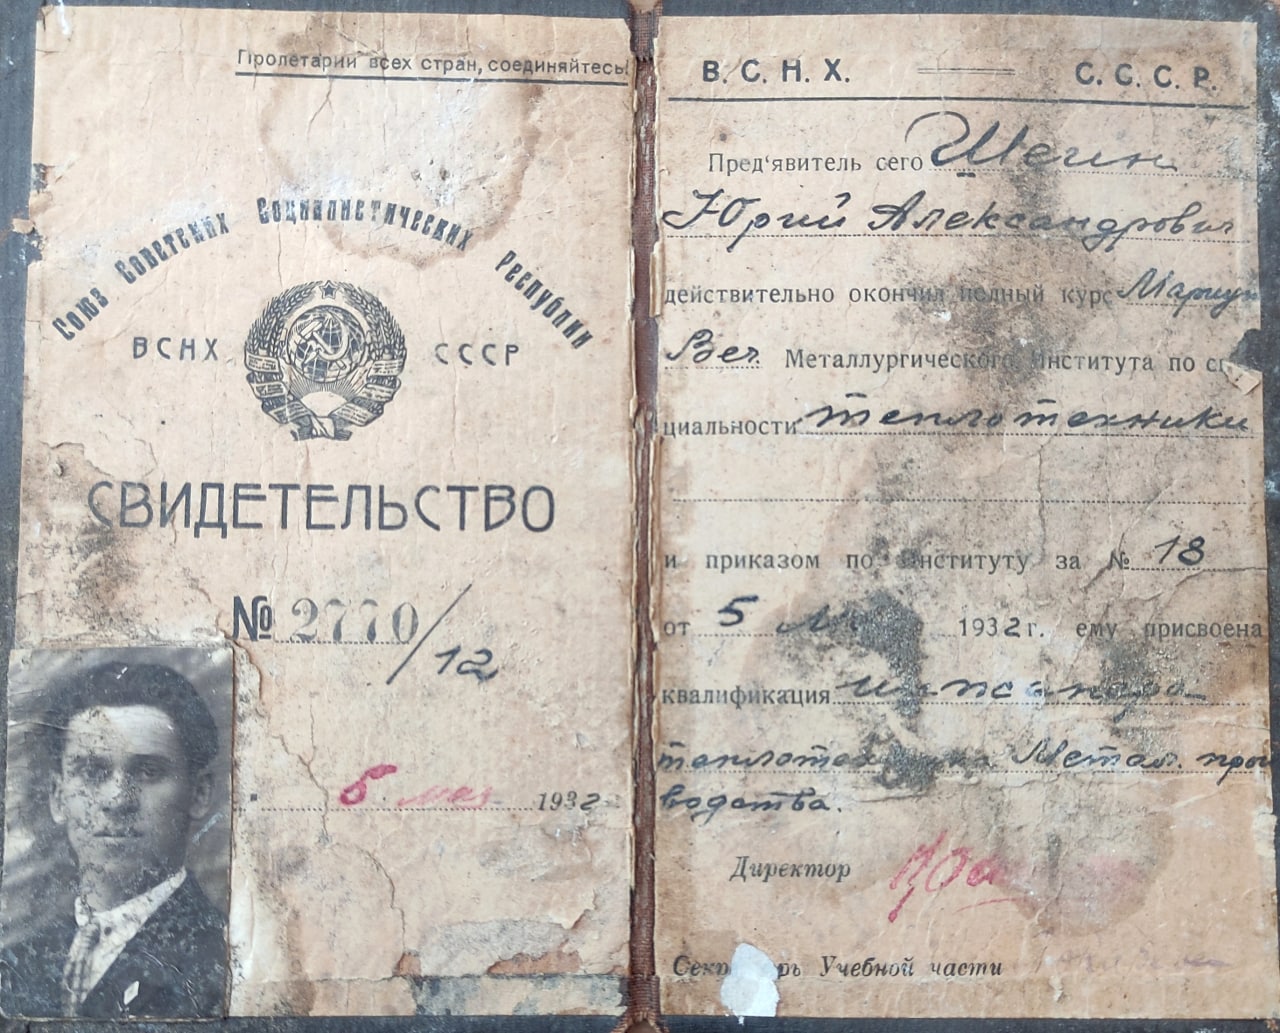 Пролетарии всех стран, соединяйтесь!
Союз Советских Социалистических Республик
ВСНХ СССР
СВИДЕТЕЛЬСТВО
№ 2770/12
5 мая 1932
В. С. Н. Х. С. С. С. Р.
Пред‘явитель сего Шегин
Юрий Александрович
действительно окончил полный курс Мариуп
Веч. Металлургического Института по спе
циальности теплотехники
и приказом по Институту за № 18
от 5 1932 г. ему присвоена
квалификация инженера
теплотехника Метал. произ
водства.
Директор
Секретарь Учебной части